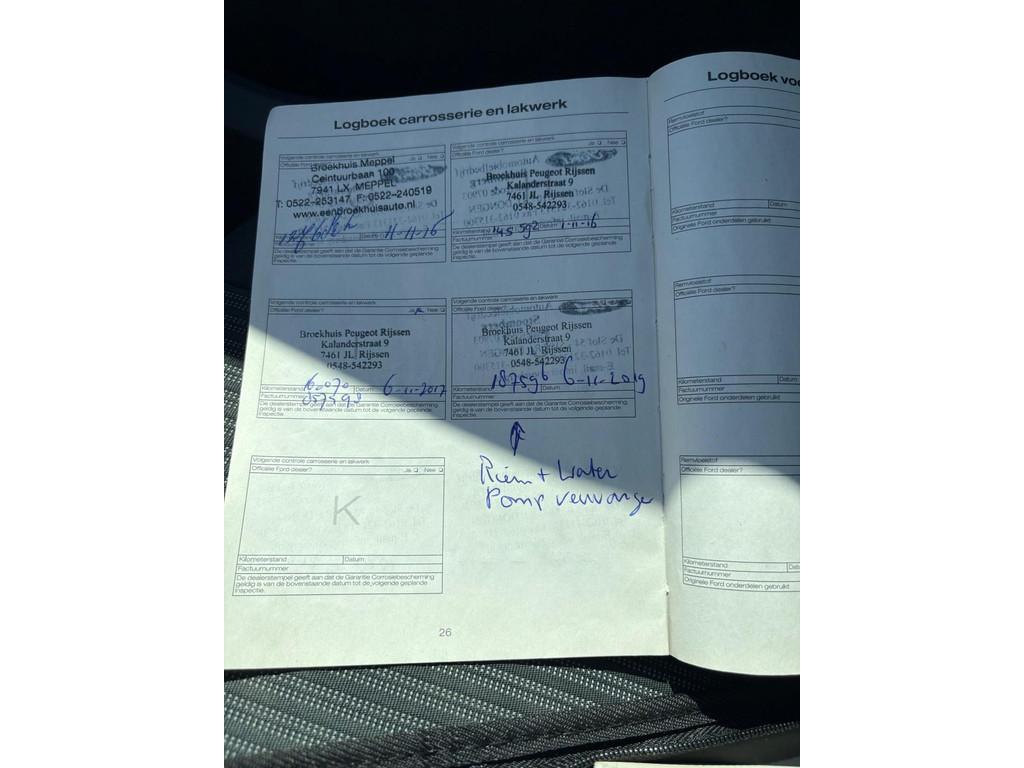 Logboek carrosserie en lakwerk
Volgende controle carrosserie en lakwerk
Officiële Ford dealer? Ja Nee
Broekhuis Meppel
Ceintuurbaan 100
7941 LX MEPPEL
T: 0522-253147 F: 0522-240519
www.eenbroekhuisauto.nl
Datum 11-11-16
De dealerstempel geeft aan dat de Garantie Corrosiebescherming
geldig is van de bovenstaande datum tot de volgende geplande
inspectie.
Volgende controle carrosserie en lakwerk
Officiële Ford dealer? Ja Nee
Broekhuis Peugeot Rijssen
Kalanderstraat 9
7461 JL Rijssen
0548-542293
Kilometerstand 145592 Datum 1-11-16
Factuurnummer
De dealerstempel geeft aan dat de Garantie Corrosiebescherming
geldig is van de bovenstaande datum tot de volgende geplande
inspectie.
Volgende controle carrosserie en lakwerk
Officiële Ford dealer? Ja Nee
Broekhuis Peugeot Rijssen
Kalanderstraat 9
7461 JL Rijssen
0548-542293
Kilometerstand Datum 6-11-2017
Factuurnummer
De dealerstempel geeft aan dat de Garantie Corrosiebescherming
geldig is van de bovenstaande datum tot de volgende geplande
inspectie.
Volgende controle carrosserie en lakwerk
Officiële Ford dealer?
Broekhuis Peugeot Rijssen
Kalanderstraat 9
7461 JL Rijssen
0548-542293
Kilometerstand 187596 Datum 6-11-2019
Factuurnummer
De dealerstempel geeft aan dat de Garantie Corrosiebescherming
geldig is van de bovenstaande datum tot de volgende geplande
inspectie.
Riem + Water
Pomp vervangen
Volgende controle carrosserie en lakwerk
Officiële Ford dealer? Ja Nee
K
Kilometerstand Datum
Factuurnummer
De dealerstempel geeft aan dat de Garantie Corrosiebescherming
geldig is van de bovenstaande datum tot de volgende geplande
inspectie.
26
Logboek
Remvloeistof
Officiële Ford dealer?
Kilometerstand Datum
Factuurnummer
Originele Ford onderdelen gebruikt
Remvloeistof
Officiële Ford dealer?
Kilometerstand Datum
Factuurnummer
Originele Ford onderdelen gebruikt
Remvloeistof
Officiële Ford dealer?
Kilometerstand
Factuurnummer
Originele Ford onderdelen gebruikt